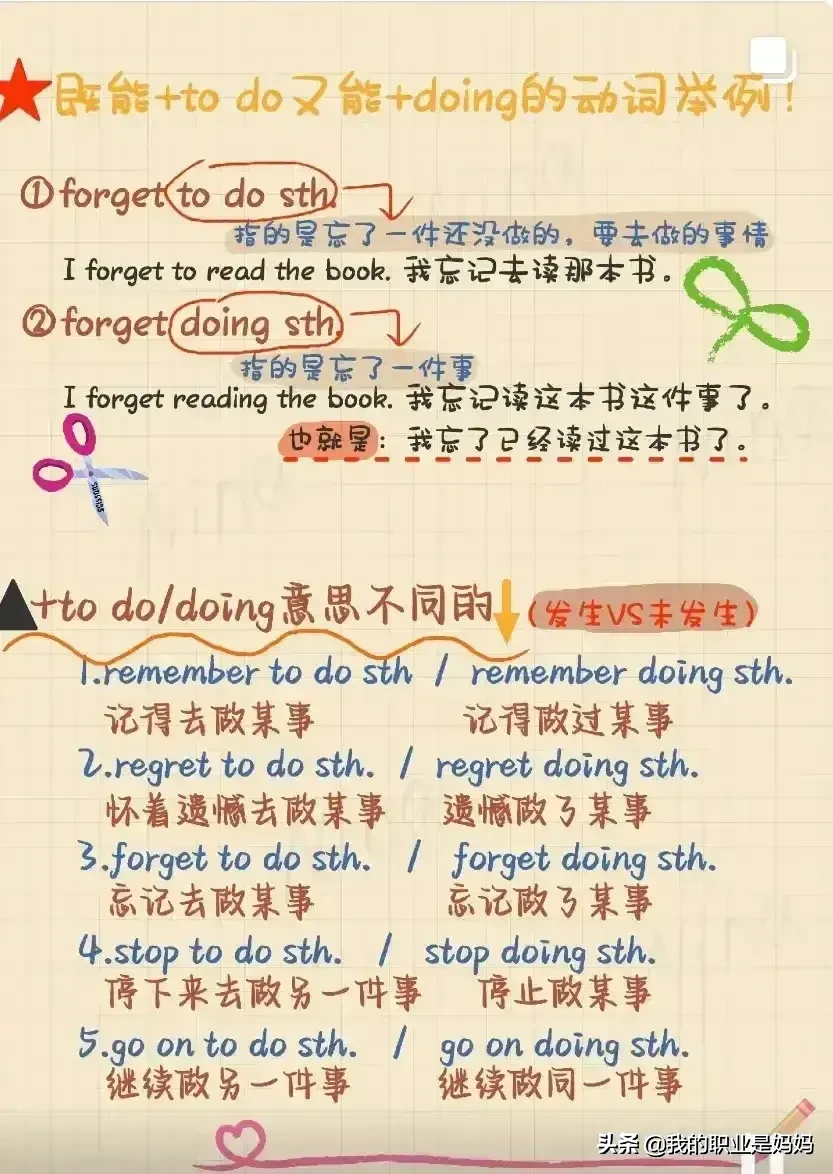 既能+to do又能+doing的动词举例！
①forget to do sth.
指的是忘了一件还没做的，要去做的事情
I forget to read the book. 我忘记去读那本书。
②forget doing sth.
指的是忘了一件事
I forget reading the book. 我忘记读这本书这件事了。
也就是：我忘了已经读过这本书了。
SCISSORS
+to do/doing意思不同的 (发生VS未发生)
1.remember to do sth / remember doing sth.
记得去做某事 记得做过某事
2.regret to do sth. / regret doing sth.
怀着遗憾去做某事 遗憾做了某事
3.forget to do sth. / forget doing sth.
忘记去做某事 忘记做了某事
4.stop to do sth. / stop doing sth.
停下来去做另一件事 停止做某事
5.go on to do sth. / go on doing sth.
继续做另一件事 继续做同一件事
头条 @我的职业是妈妈